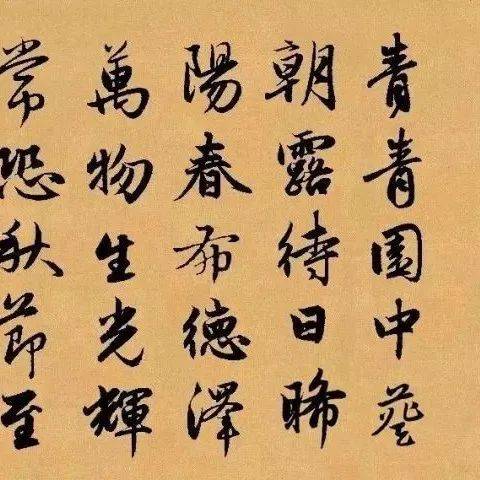 青青園中葵
朝露待日晞
陽春布德澤
萬物生光輝
常恐秋節至